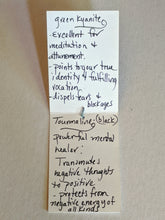 green kyanite
- Excellent for
meditation &
attunement.
- points to your true
identity & fulfilling
vocation.
- dispels tears &
blockages
Tourmaline: (black)
powerful mental
healer:
Transmutes
negative thoughts
to positive.
- protects from
negative energy of
all kinds